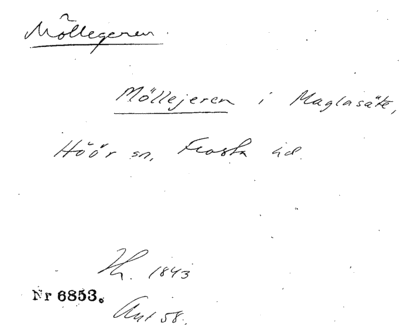 Möllegeren.
Möllejeren i Maglasäte,
Höör sn, Frosta hd.
1843
Nr 6853.
Ant 58.